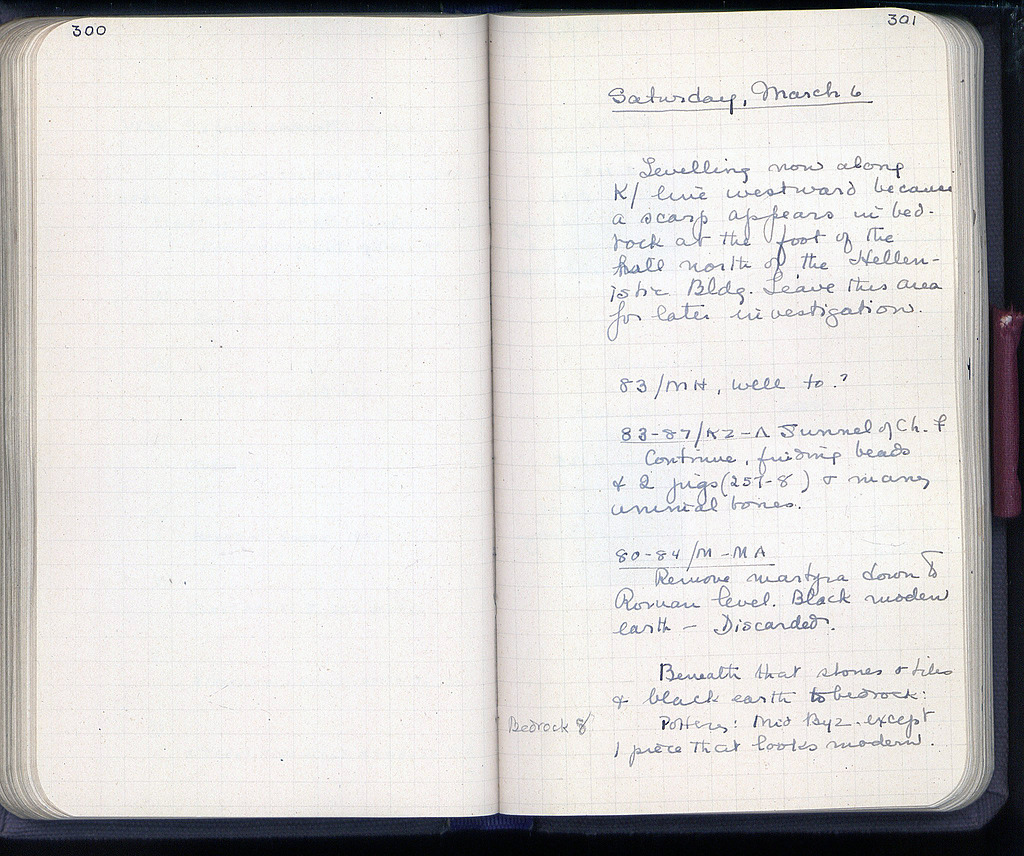 300
301
Saturday, March 6
Levelling now along
K/ line westward because
a scarp appears in bed-
rock at the foot of the
hall north of the Hellen-
istic Bldg. Leave this area
for later investigation.
83/MH, well to ?
83-87/KZ-Λ Tunnel of Ch. F
Continue, finding beads
& 2 jugs (257-8) & many
animal bones.
80-84/M-MA
Remove martyra down to
Roman level. Black modern
earth - Discarded.
Beneath that stones & tiles
& black earth to bedrock:
Bedrock 8/
Pottery: Mid Byz. except
1 piece that looks modern.